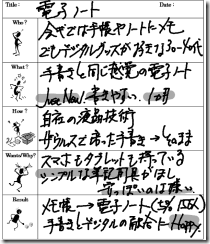 Title: 電子ノート Date:
Who?
今までは手帳やノートにメモ
でもデジタルグッズが好きな30〜40代
What?
手書きと同じ感覚の電子ノート
書きやすい
How?
自在の液晶技術
ザウルスで培った手書き→そのまま
Wants/Why?
スマホもタブレットも持っている
シンプルな筆記用具がほしい
Result
メモ帳→電子ノート
手書きとデジタルの融合に Happy